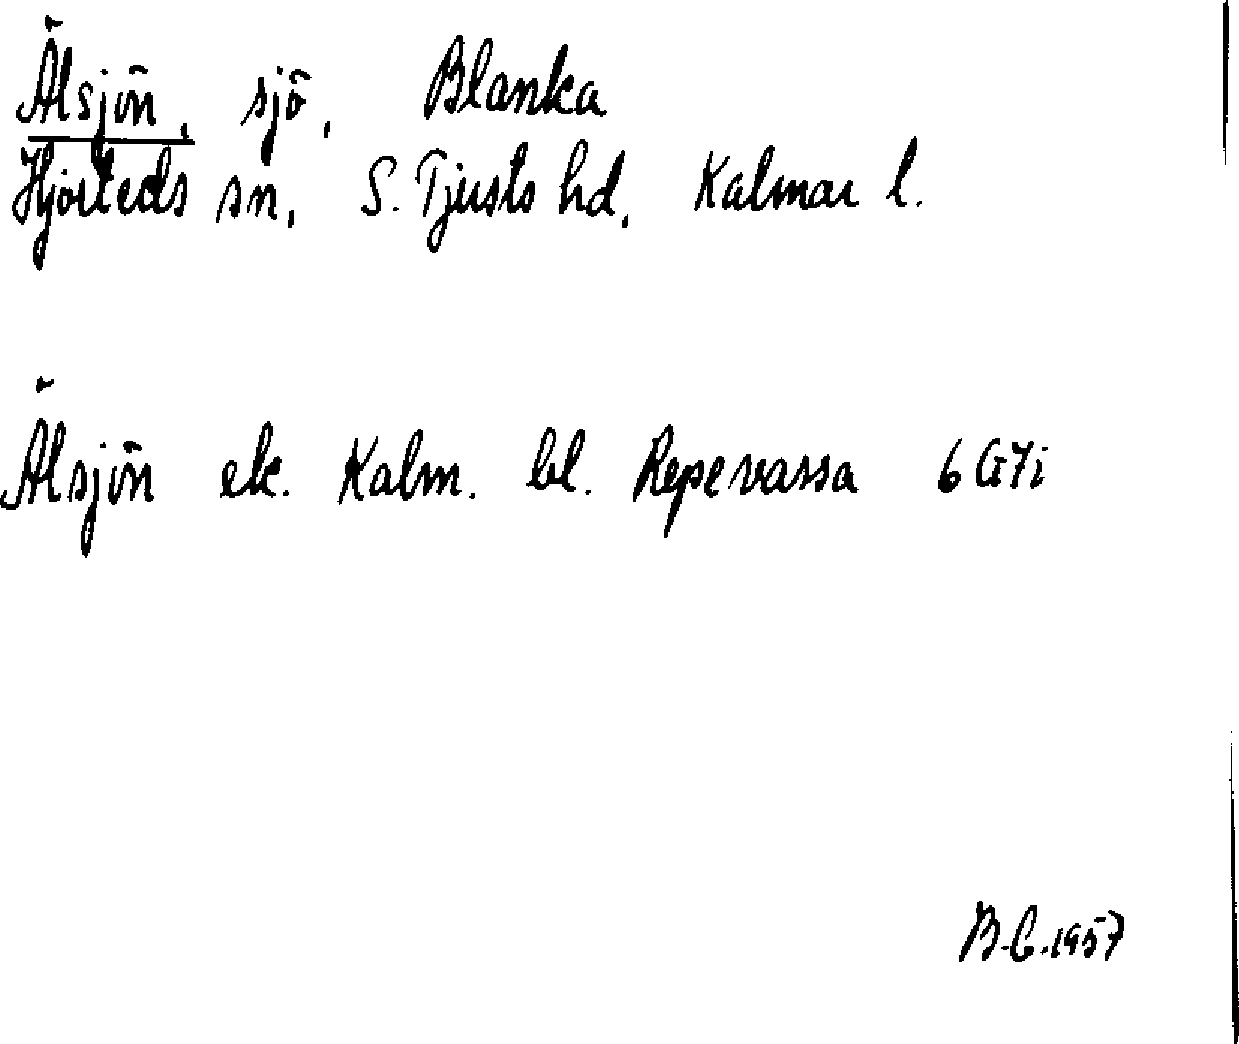 Älsjön, sjö, Blanka
Hjorteds sn, S. Tjusts hd, Kalmar l.
Älsjön ek. Kalm. bl. Repevassa 6G7i
B.C. 1957